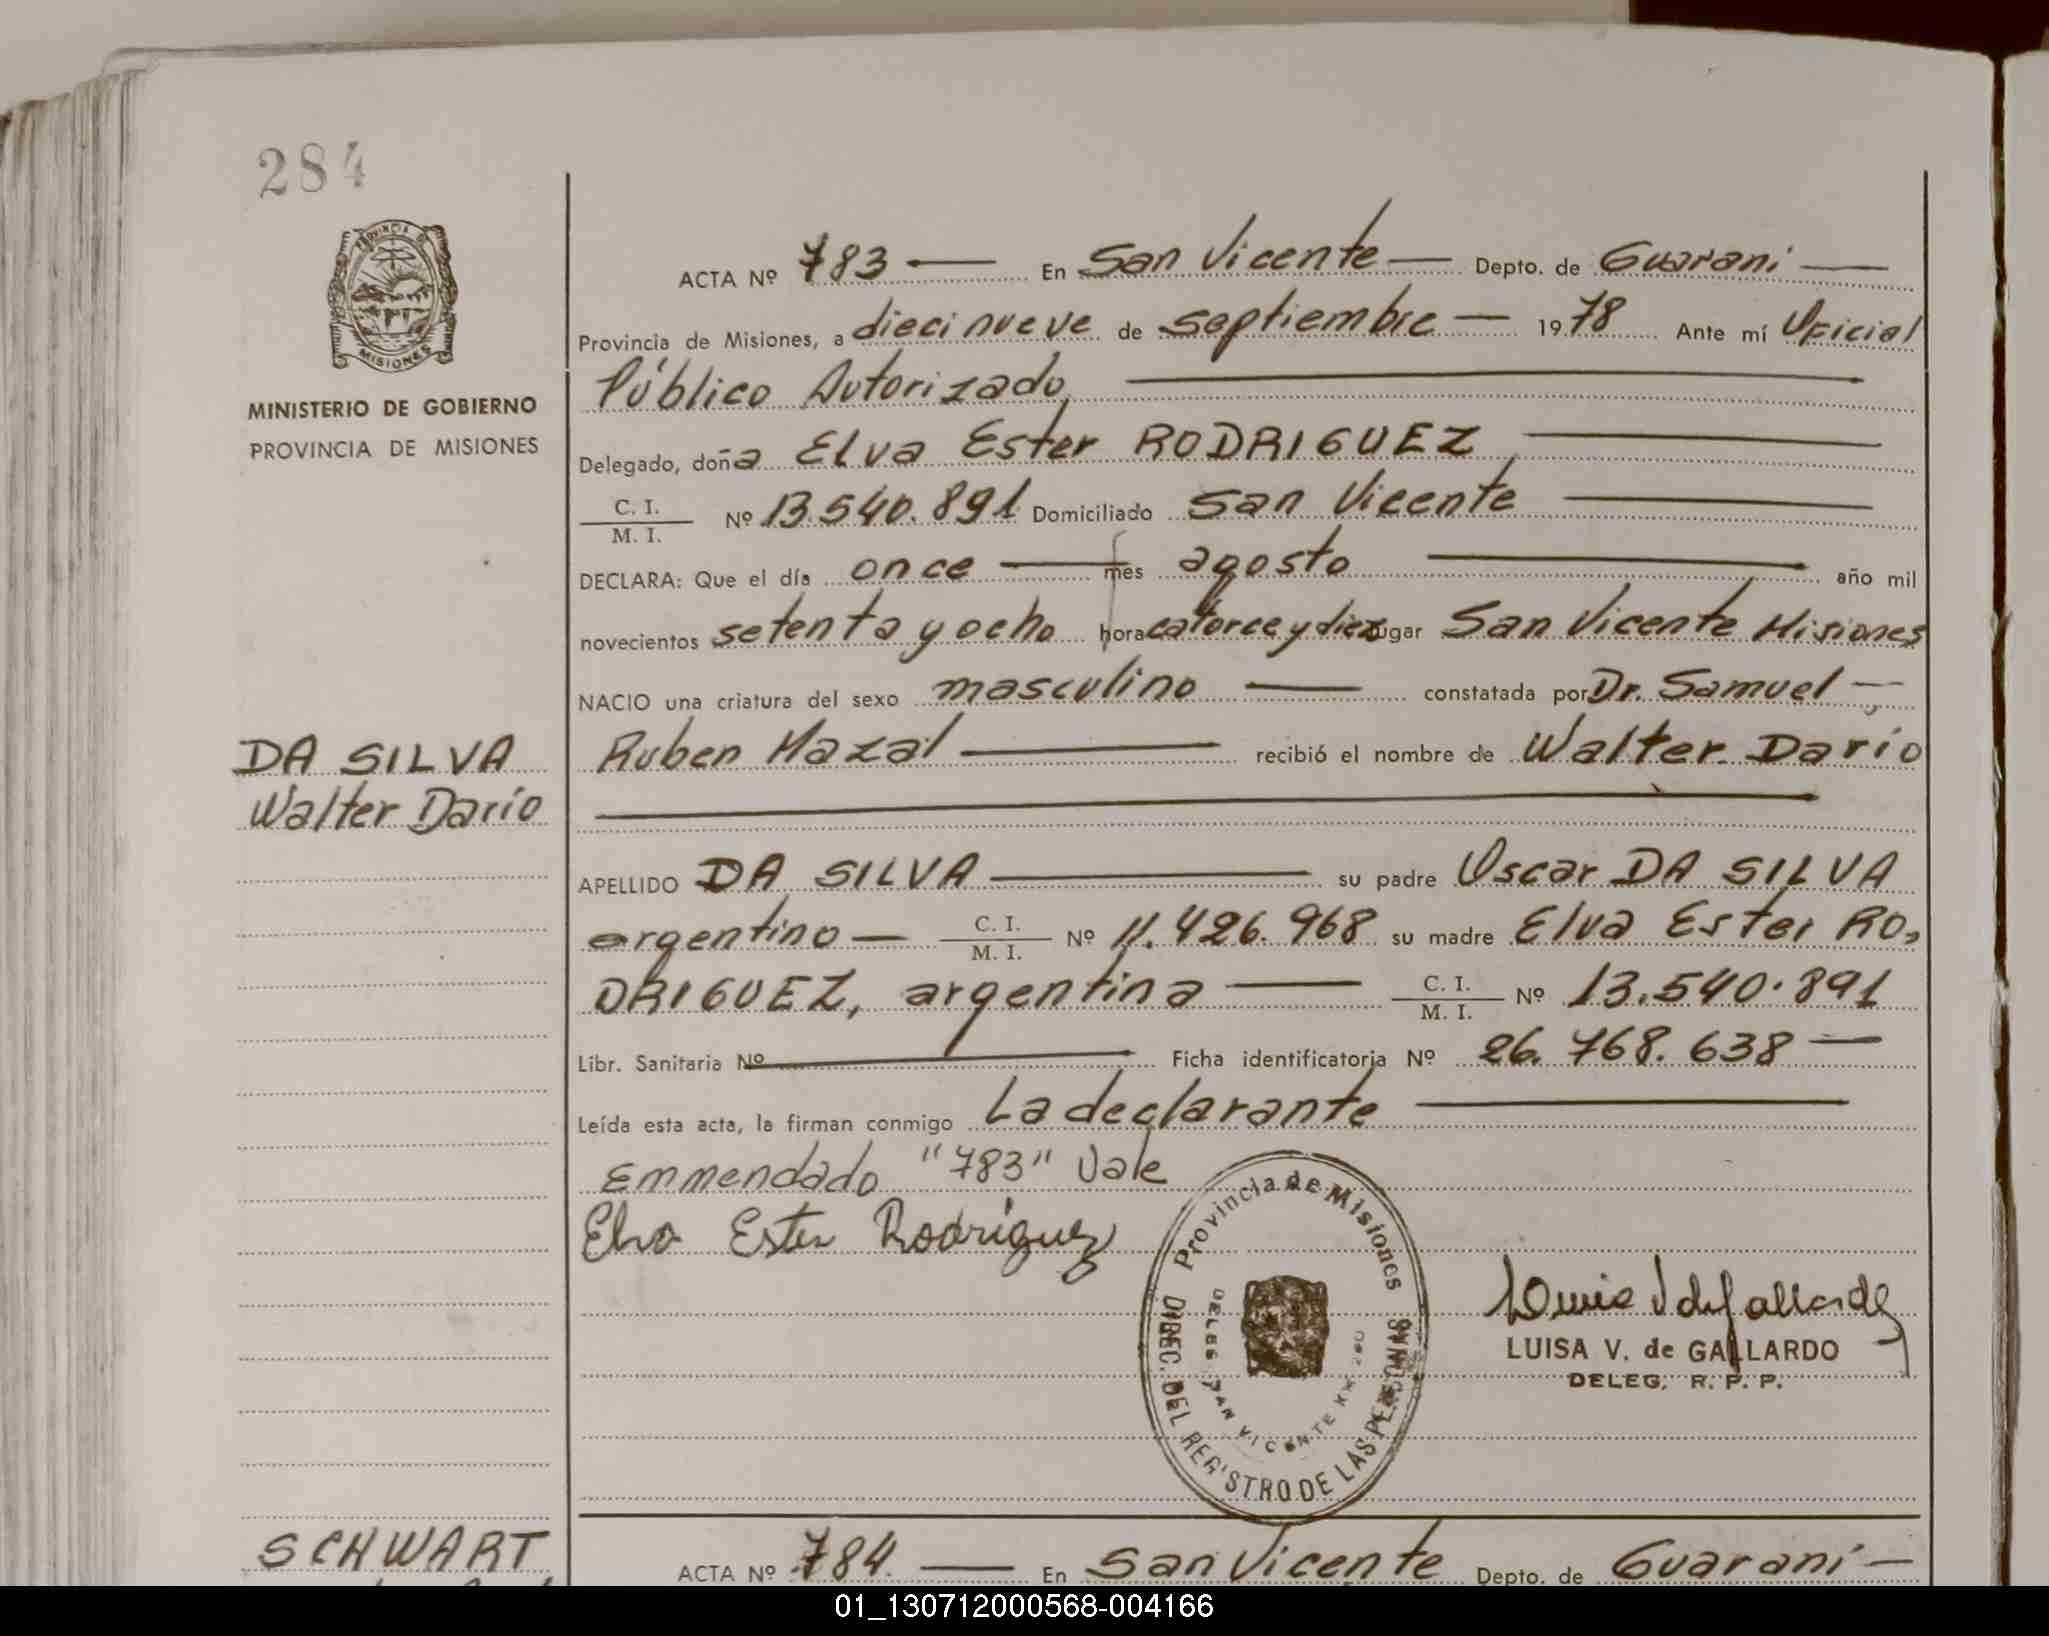 284
PROVINCIA DE
MISIONES
MINISTERIO DE GOBIERNO
PROVINCIA DE MISIONES
DA SILVA
Walter Darío
ACTA Nº 783 — En San Vicente — Depto. de Guaraní —
Provincia de Misiones, a diecinueve de septiembre — 1978 Ante mí Oficial
Público Autorizado
Delegado, doña Elva Ester RODRIGUEZ
C. I.
M. I. Nº 13.540.891 Domiciliado San Vicente
DECLARA: Que el día once — mes agosto — año mil
novecientos setenta y ocho hora catorce y diez lugar San Vicente Misiones
NACIO una criatura del sexo masculino — constatada por Dr. Samuel —
Ruben Mazal — recibió el nombre de Walter Darío
APELLIDO DA SILVA — su padre Oscar DA SILVA
argentino — C. I. M. I. Nº 11.426.968 su madre Elva Ester RO,
DRIGUEZ, argentina — C. I. M. I. Nº 13.540.891
Libr. Sanitaria Nº — Ficha identificatoria Nº 26.768.638 —
Leída esta acta, la firman conmigo La declarante —
Emmendado "783" Vale
Elva Ester Rodríguez
Provincia de Misiones
DIREC. DEL REGISTRO DE LAS PERSONAS
DELEG. SAN VICENTE KM 260
LUISA V. de GALLARDO
DELEG. R. P. P.
SCHWART
ACTA Nº 784. — En San Vicente Depto. de Guaraní —
01_130712000568-004166